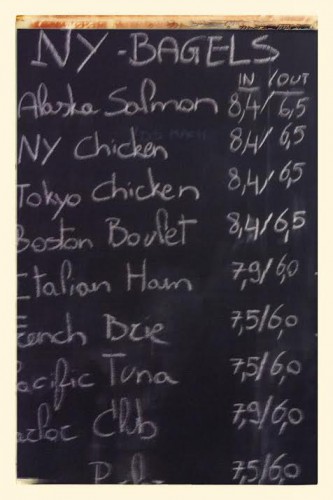 NY-BAGELS
IN / OUT
Alaska Salmon 8,4/6,5
NY Chicken 8,4/6,5
Tokyo Chicken 8,4/6,5
Boston Boulet 8,4/6,5
Italian Ham 7,9/6,0
French Brie 7,5/6,0
Pacific Tuna 7,5/6,0
Club 7,9/6,0
7,5/6,0